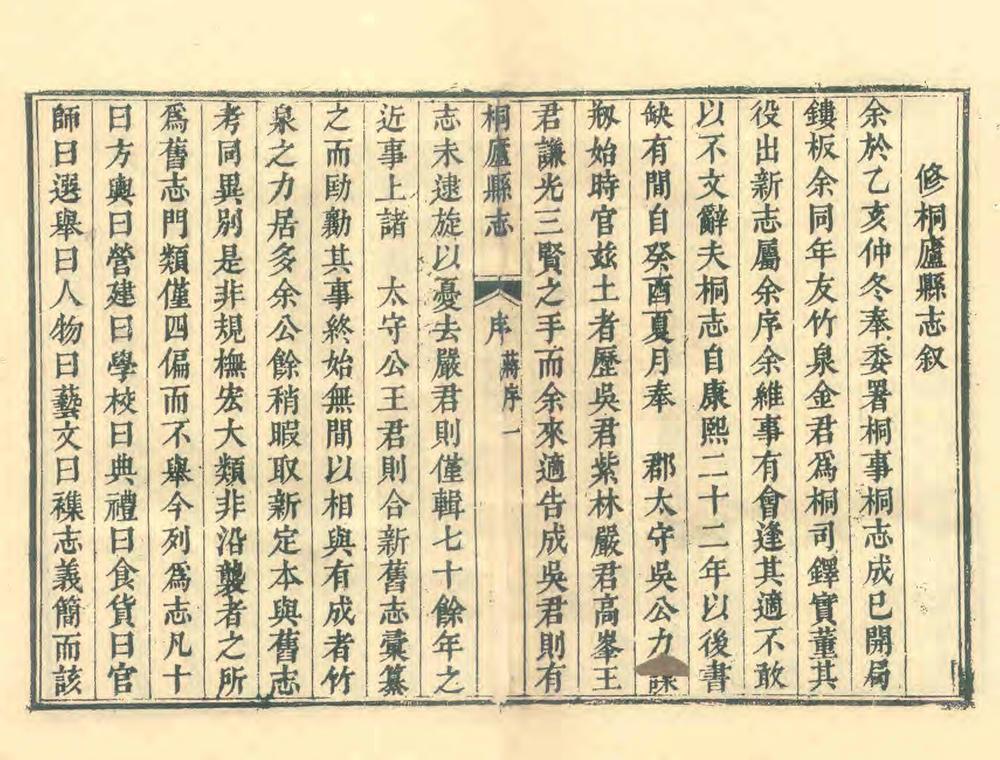 修桐廬縣志叙
余於乙亥仲冬奉委署桐事桐志成巳開局
鏤板余同年友竹泉金君爲桐司鐸實董其
役出新志屬余序余維事有會逢其適不敢
以不文辭夫桐志自康熙二十二年以後書
缺有間自癸酉夏月奉　郡太守吳公力
剏始時官兹土者歷吳君紫林嚴君高峯王
君謙光三賢之手而余來適告成吳君則有
桐廬縣志　序　蔣序　一
志未逮旋以憂去嚴君則僅輯七十餘年之
近事上諸　太守公王君則合新舊志彙纂
之而勖勷其事終始無間以相與有成者竹
泉之力居多余公餘稍暇取新定本與舊志
考同異別是非規橅宏大類非沿襲者之所
爲舊志門類僅四偏而不舉今列爲志凡十
曰方輿曰營建曰學校曰典禮曰食貨曰官
師曰選舉曰人物曰藝文曰襍志義簡而該